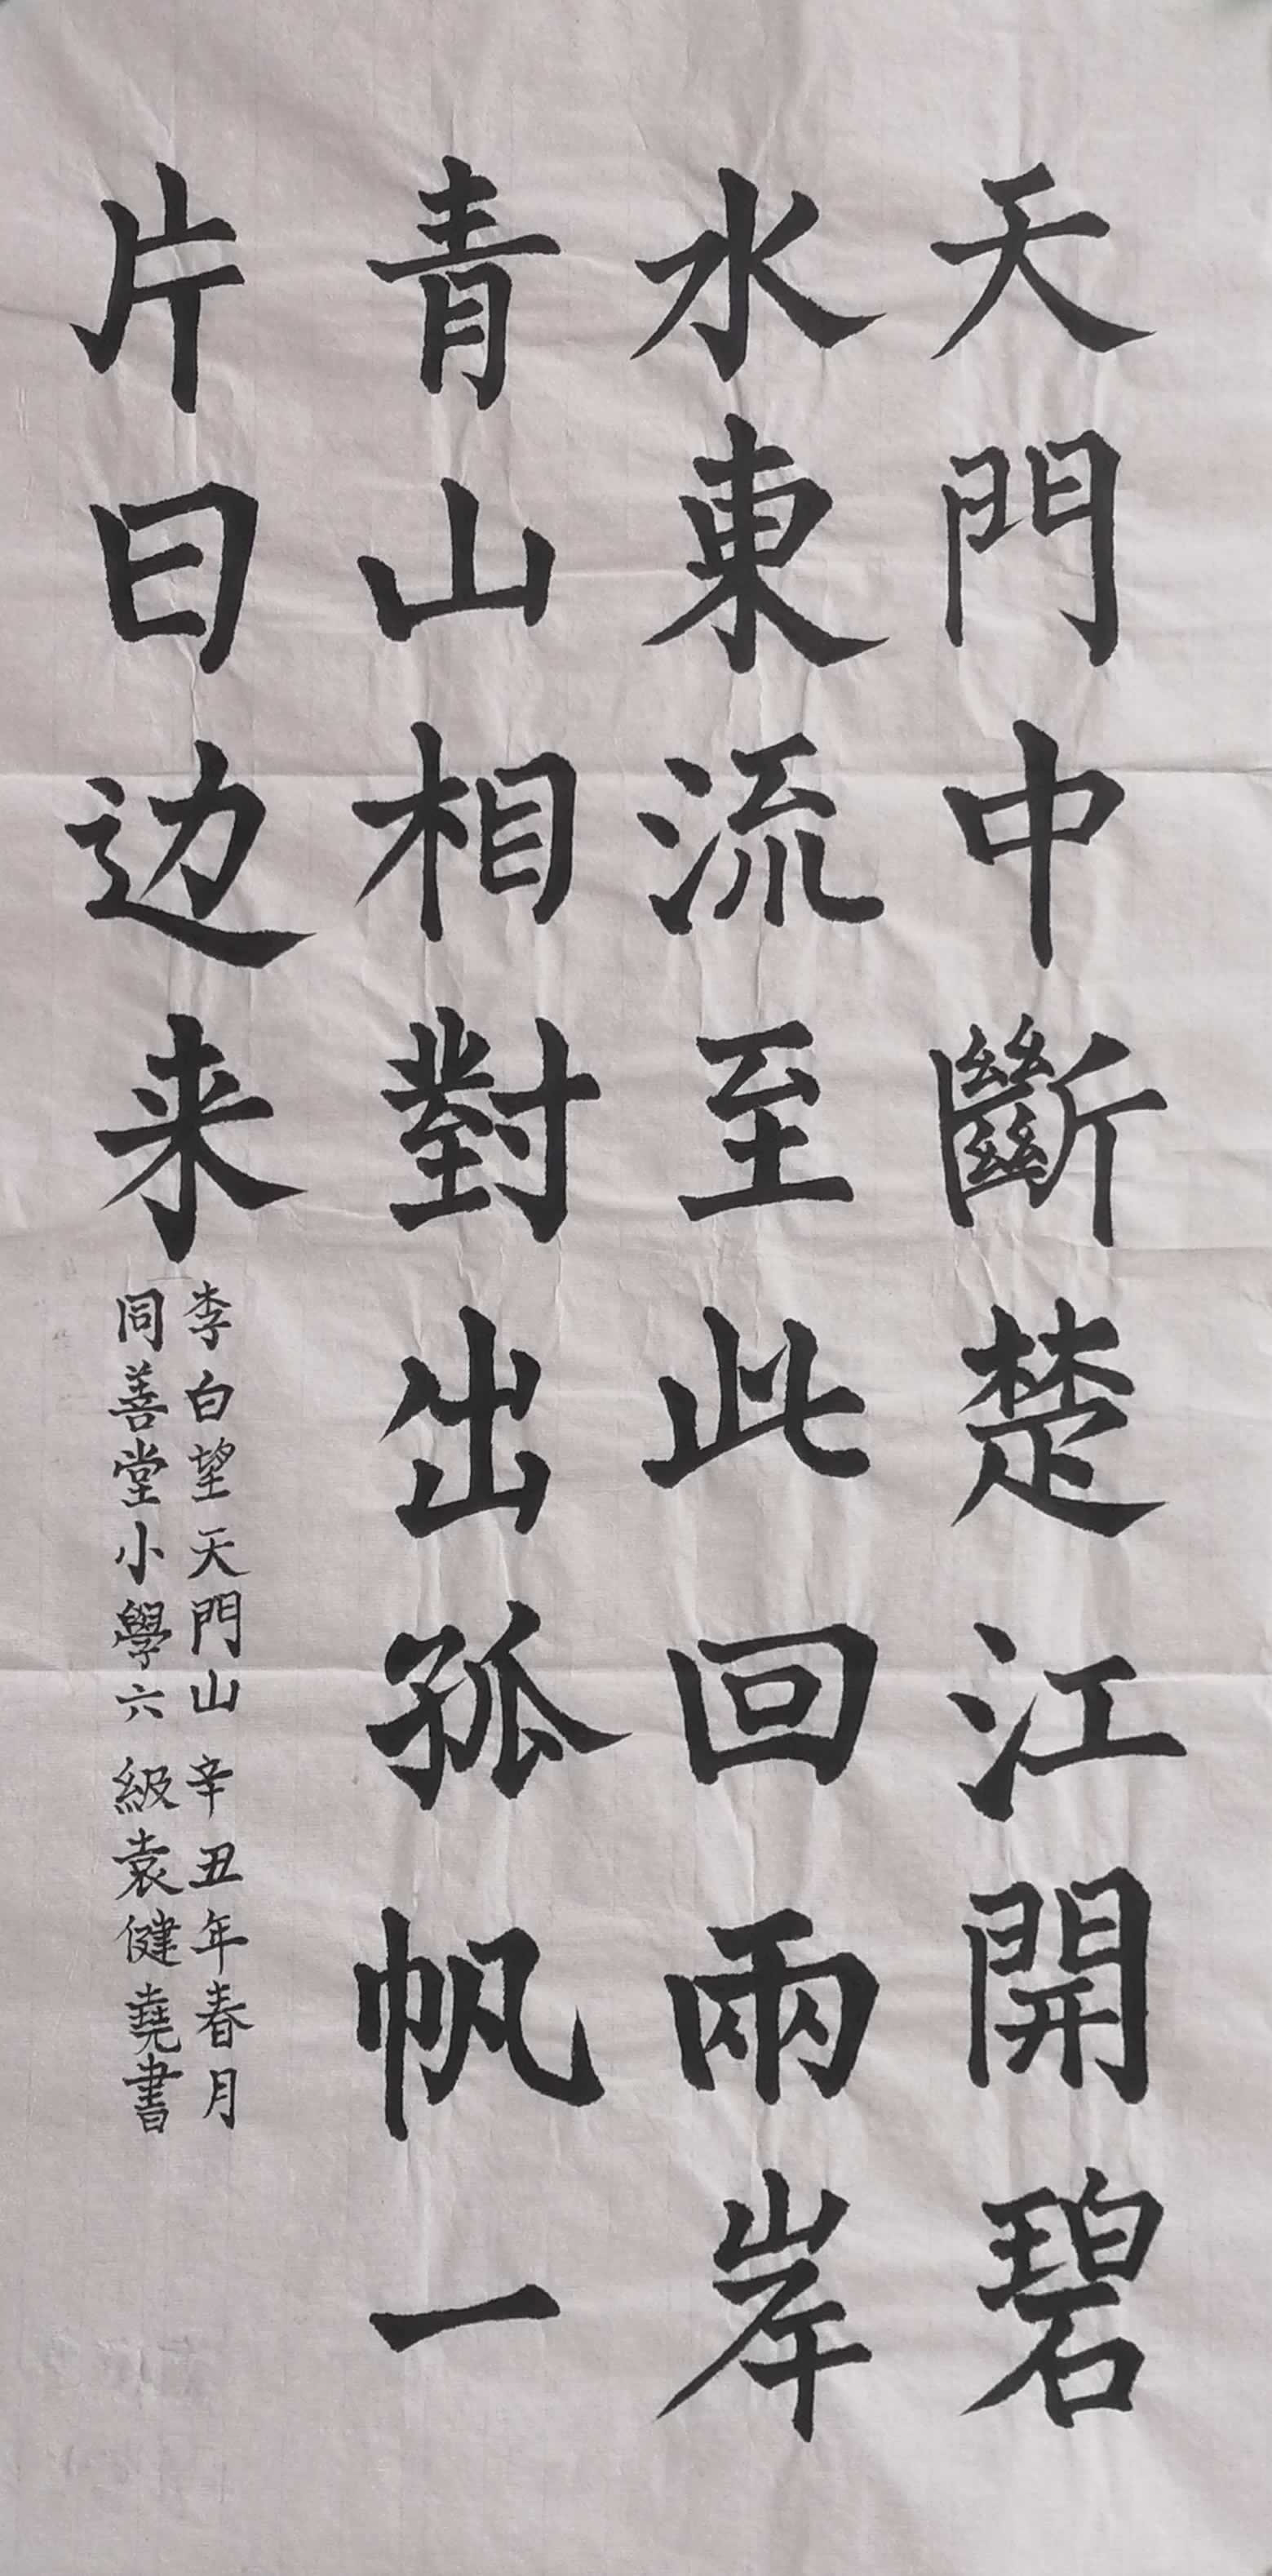 天門中斷楚江開碧
水東流至此回兩岸
青山相對出孤帆一
片日边来
李白望天門山 辛丑年春月
同善堂小學六 級袁健堯書